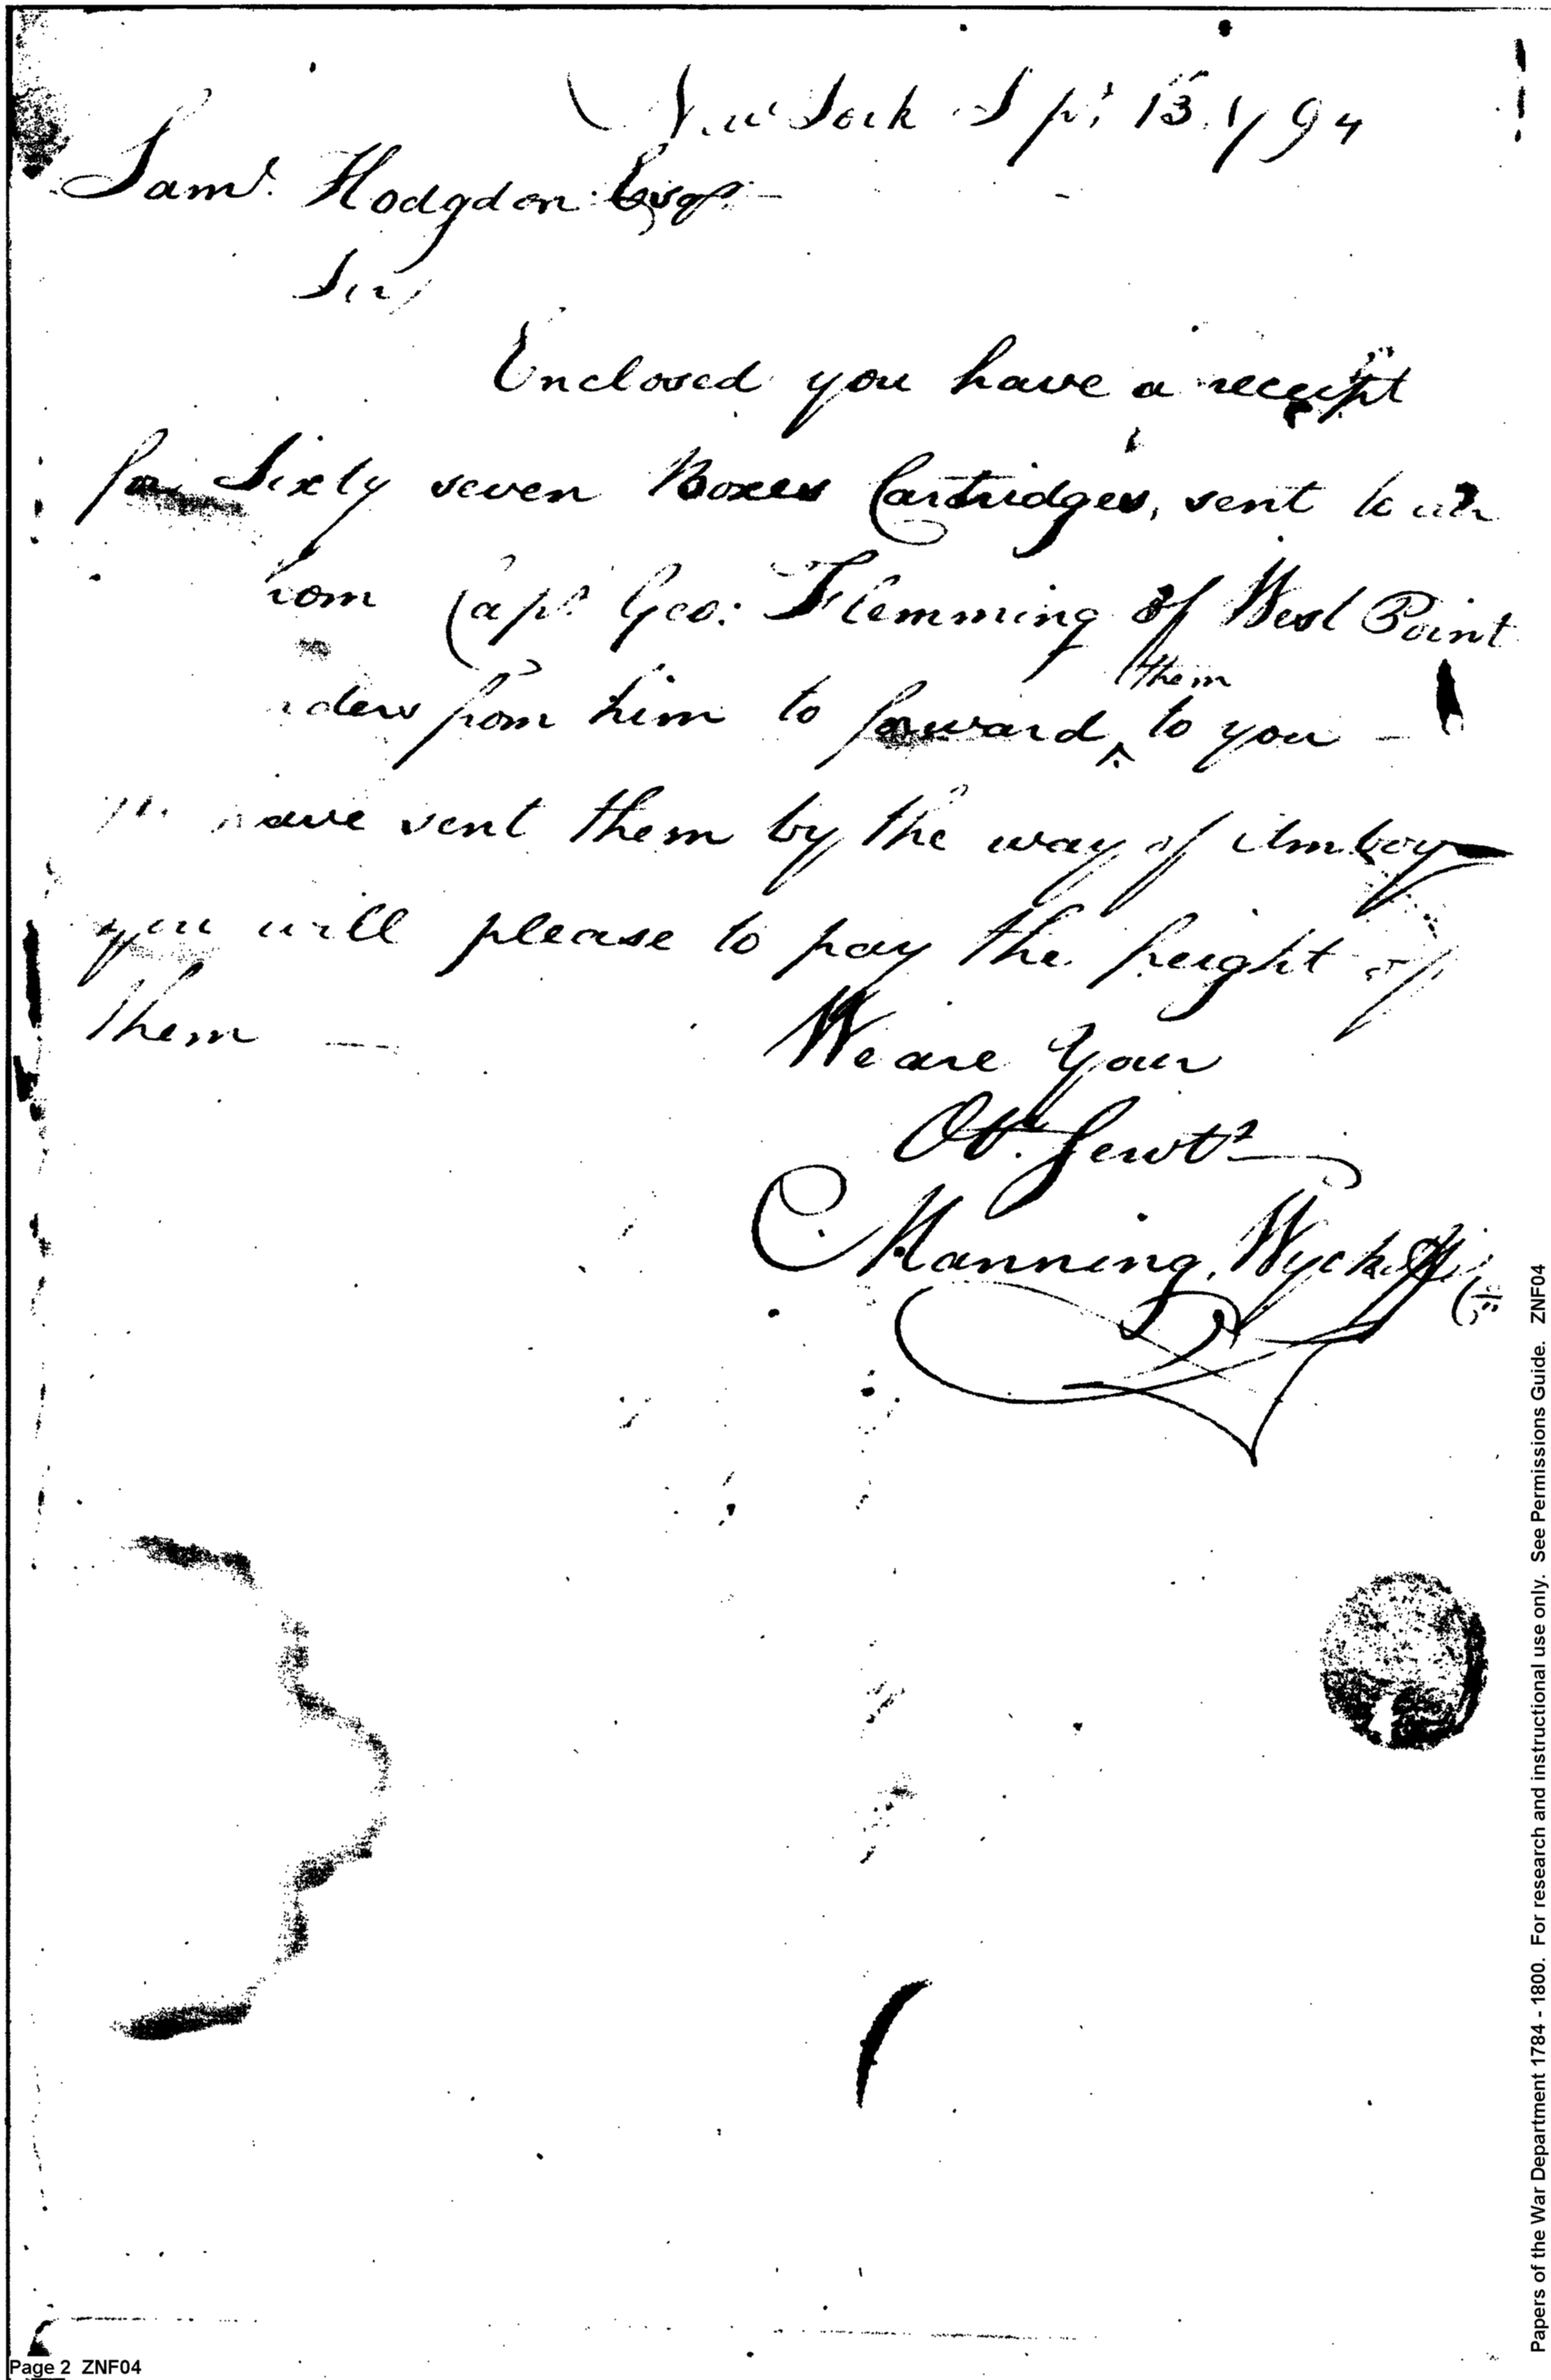 New York Spt 13. 1794
Saml. Hodgdon Esqr.
Sir,
Enclosed you have a receipt
for Sixty seven Boxes Cartridges, sent to us
from Capt. Geo: Flemming of West Point
orders from him to forward ^them to you —
We have sent them by the way of Amboy
you will please to pay the freight of
them —
We are Your
Obt. Servts
Manning, Wyckoff
Papers of the War Department 1784 - 1800. For research and instructional use only. See Permissions Guide. ZNF04
Page 2 ZNF04